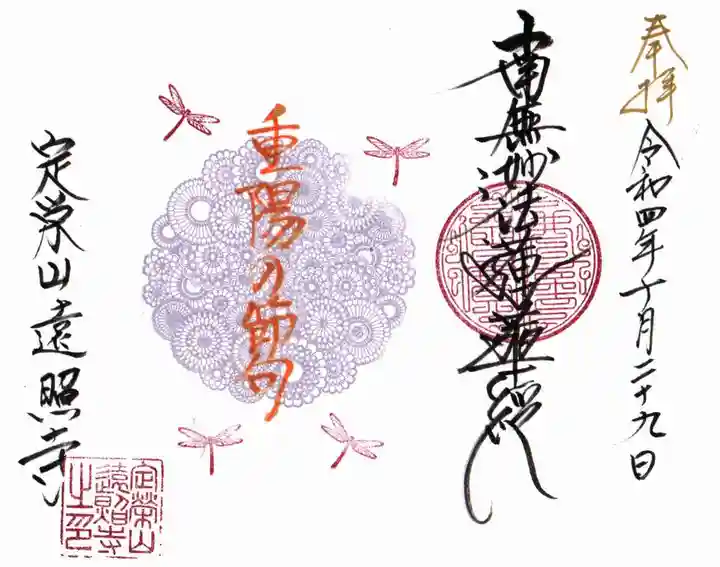 奉拝
令和四年十月二十九日
南無妙法蓮華経
重陽の節句
定栄山遠照寺
定榮山
遠照寺
之印